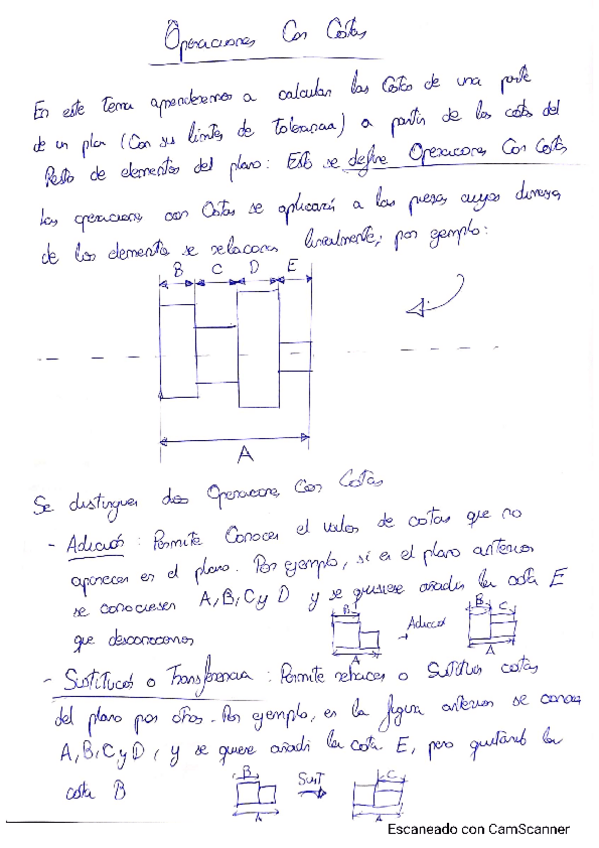 Operaciones Con Cotas
En este tema aprenderemos a calcular las Cotas de una parte
de un plano (Con sus límites de tolerancia) a partir de las cotas del
Resto de elementos del plano: Esto se define Operaciones Con Cotas
Las operaciones con Cotas se aplicarán a las piezas cuyas
de los elementos se relacionan linealmente, por ejemplo:
B C D E
A
Se distinguen dos Operaciones Con Cotas
- Adición: Permite Conocer el valor de cotas que no
aparecen en el plano. Por ejemplo, si en el plano anterior
se conociesen A, B, C y D y se quisiese añadir la cota E
que desconocemos
B
A
→ Adición
B C
A
- Sustitución o Transferencia: Permite rehacer o Sustituir cotas
del plano por otras. Por ejemplo, en la figura anterior se conoce
A, B, C y D, y se quiere añadir la cota E, pero quitando la
cota B
B
A
Sust
C
A
Escaneado con CamScanner